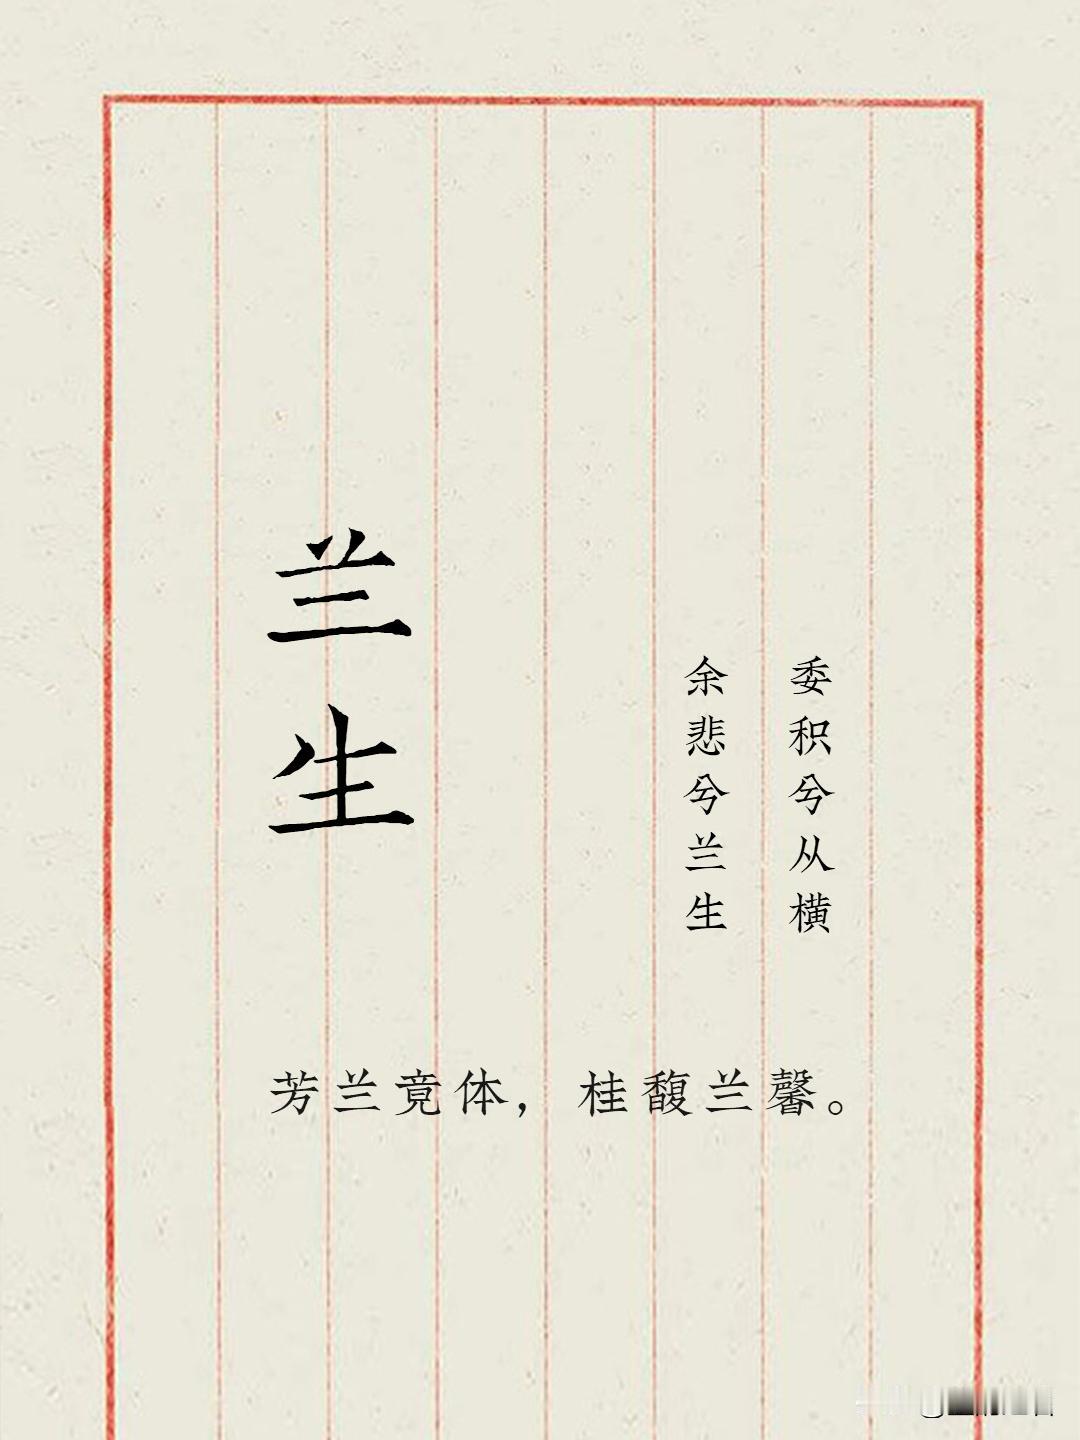 兰生
委积兮从横
余悲兮兰生
芳兰竟体，桂馥兰馨。